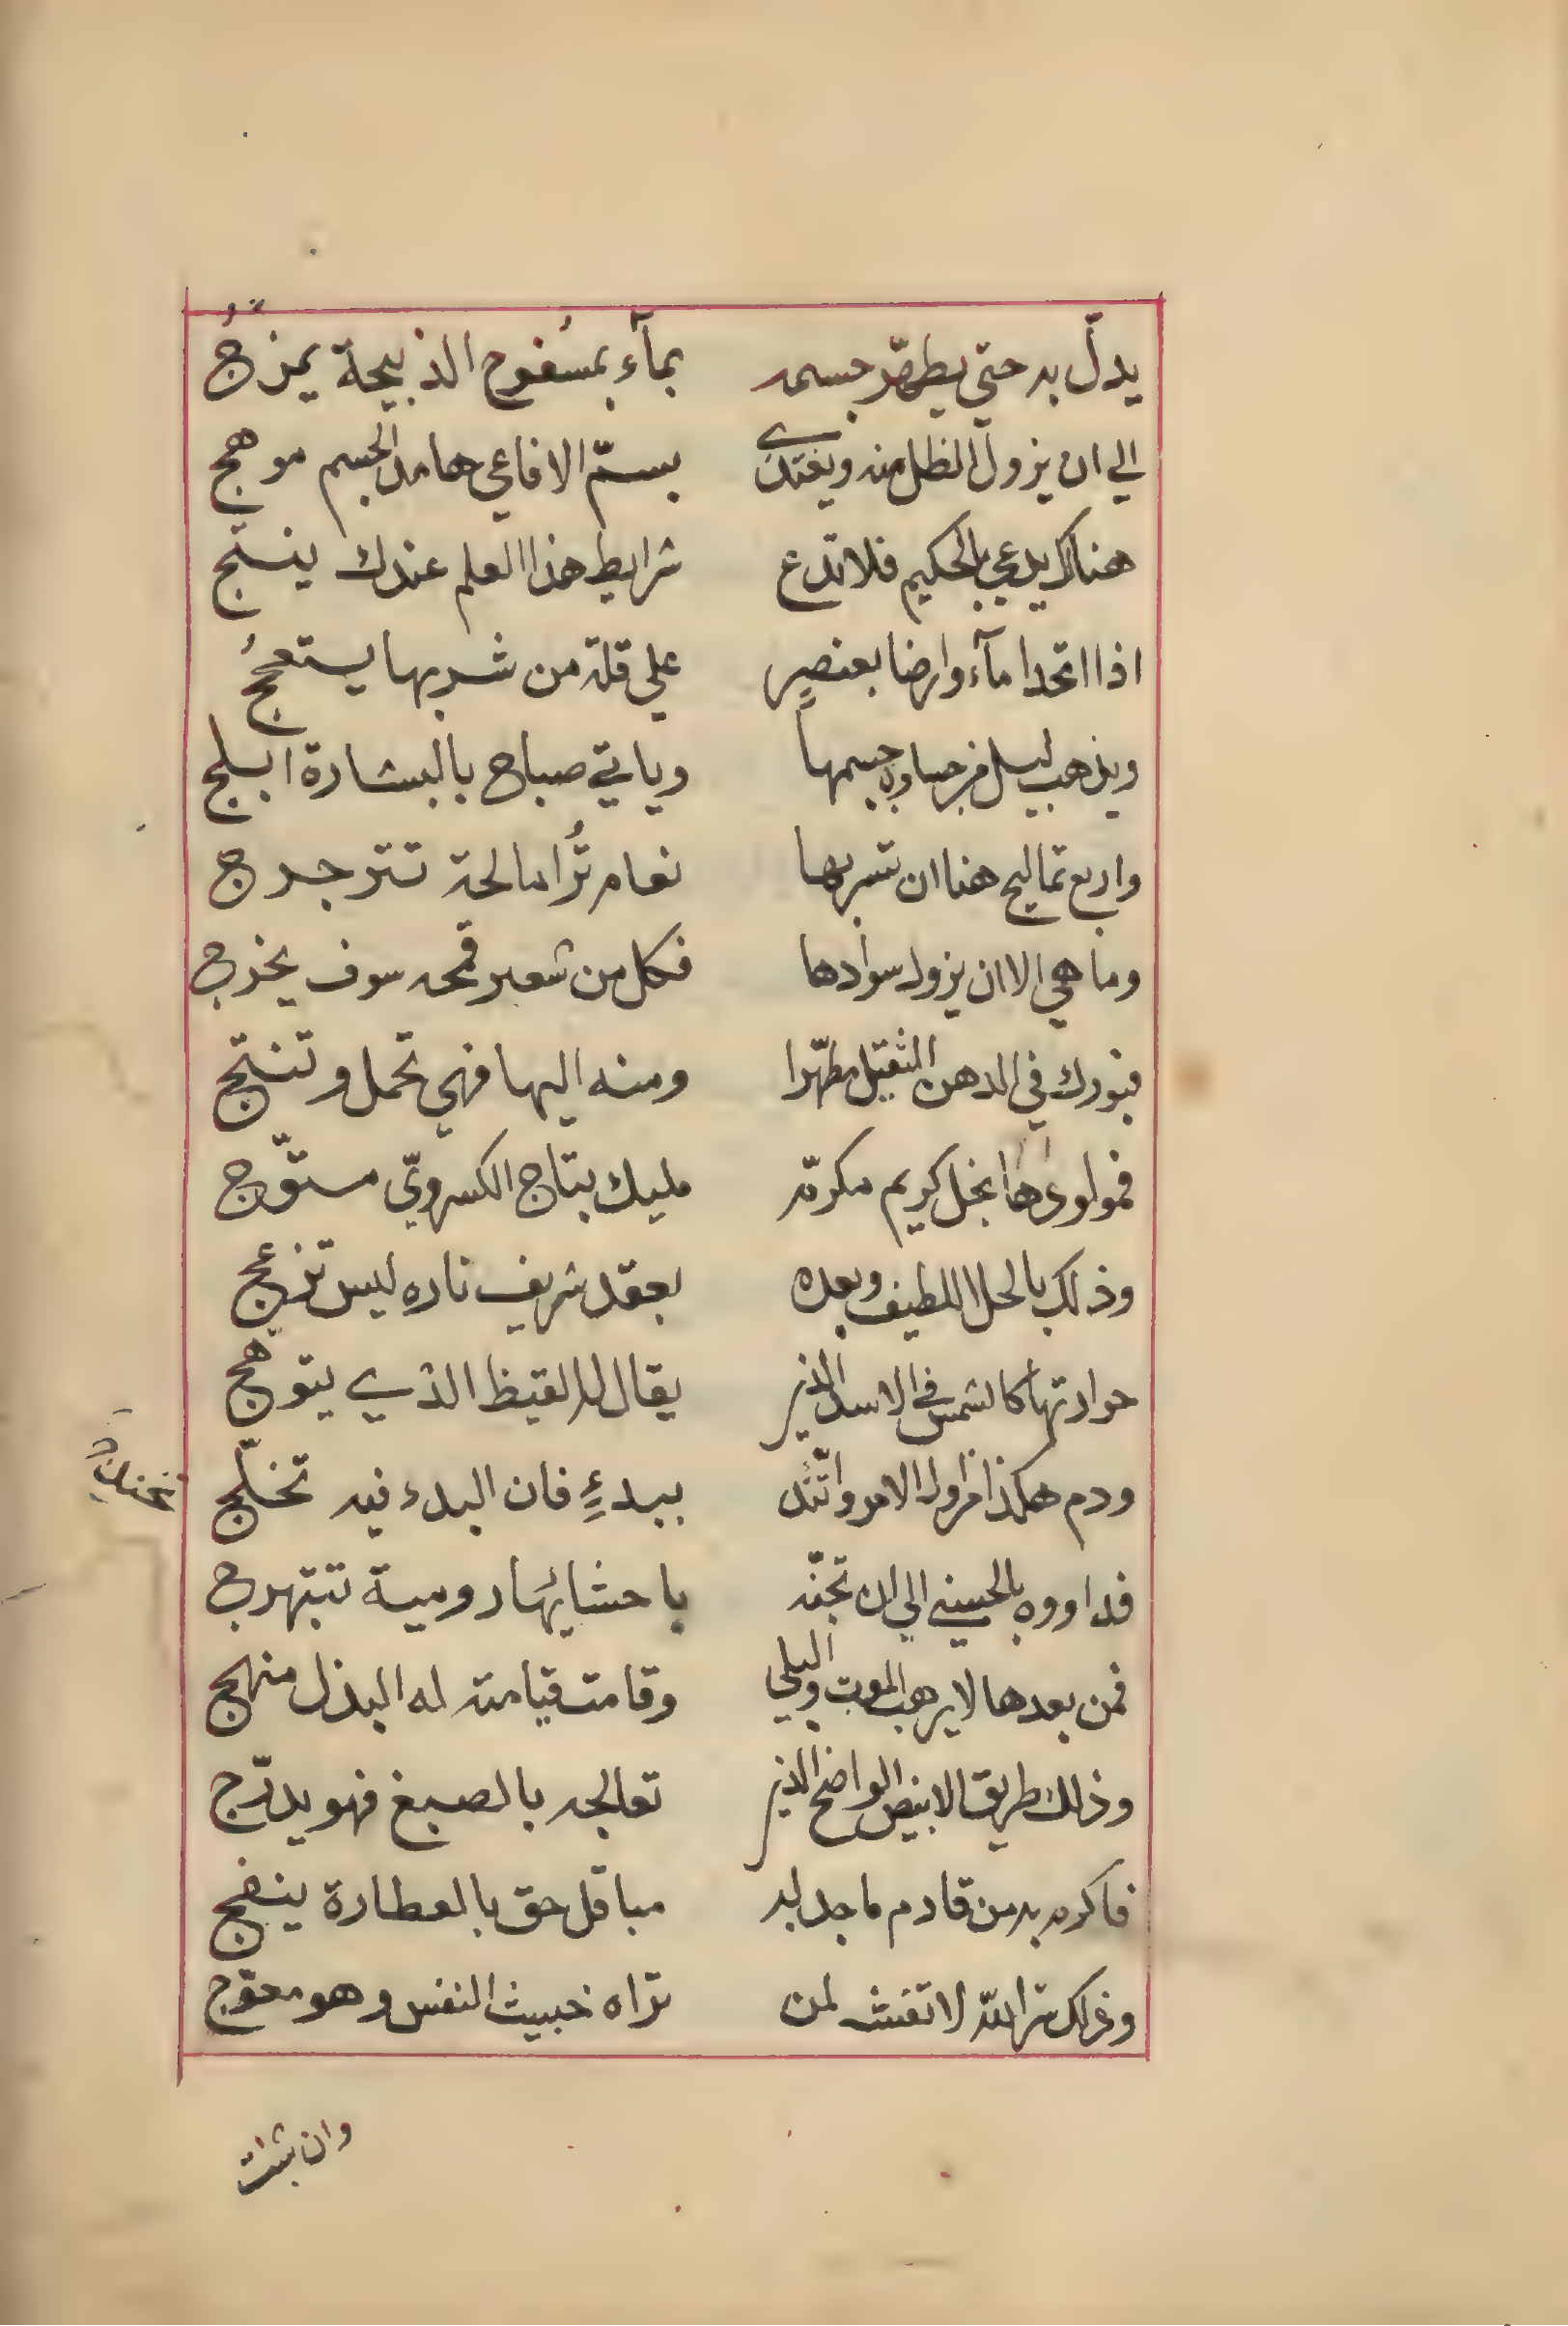 يدلّ به حتي يطهّر جسمه بمآء بمسفوح الذبيحة يمزج
الي ان يزول الظل منه ويغتدى بسمّ الافاعي هامد الجسم موهج
هناك يدعي بالحكيم فلا تدع شرايط هذا العلم عندك ينسج
اذا اتحدا مآء وارضا بعنصرٍ علي قلة من شربها يستعجُ
ويذهب ليل من جسمها وياتي صباح بالبشارة ابلج
واربع تماليح هنا ان تشربها نعام تُرا تترجرج
وما هي الا ان يزول سوادها فكل من شعير قمحه سوف يخرج
فبورك في الدهن الثقيل مطهّرا ومنه اليها فهي تحمل وتنتج
فمولودها نجل كريم مكرمّ مليك بتاج الكسرويّ متوّج
وذلك بالحلا اللطيف وبعده بعقد شريف ناره ليس تزعج
حرارتها كالشمس في الاسد الذي يقال له القيظ الذي يتوهّج
ودم هكذا في اول الامر واتّئد ببدءٍ فان البدء فيه تخلّج
فداووه بالحسني الي ان تجنّه باحشايها رومية تتبهرج
فمن بعدها لا يرهب الموت والبلي وقامت قيامته له البذل منهج
وذلك طريق الابيض الواضح الذي تعالجه بالصبغ فهو يدرّج
فاكرم به من قادم ماجد له مباقل حق بالعطارة ينفج
وذلك سر الله لا تفشه لمن تراه خبيث النفس وهو معوّج
وان شئت